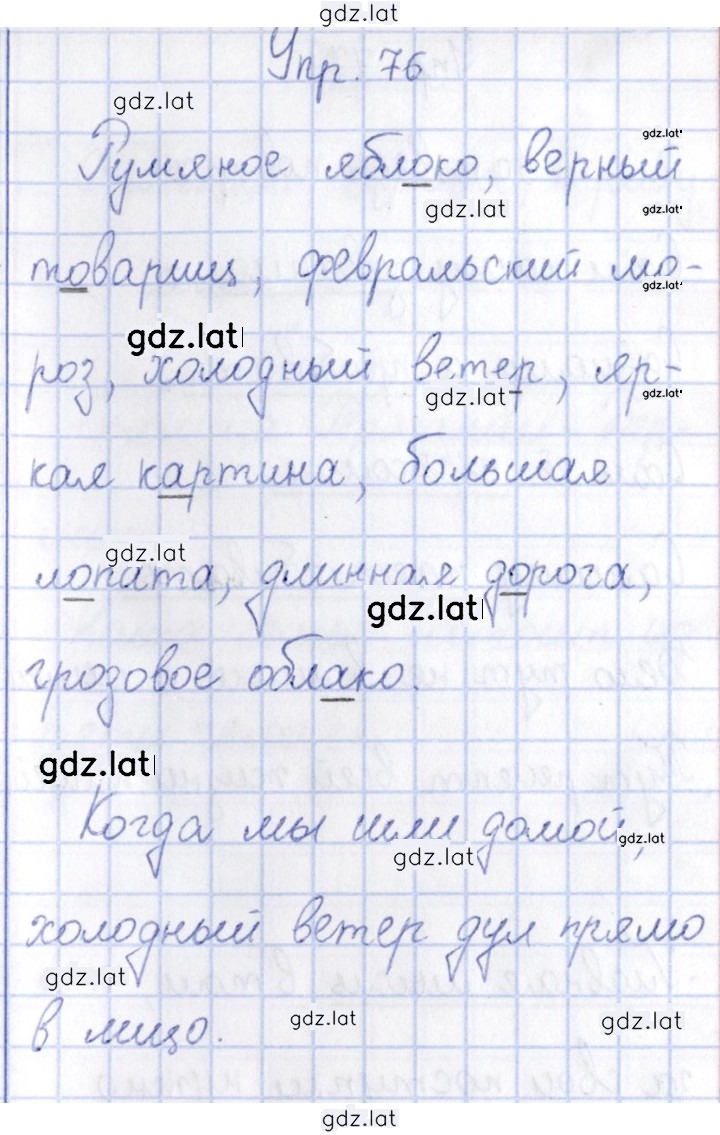 gdz.lat
Упр. 76
gdz.lat
Румяное яблоко, верный
gdz.lat
gdz.lat
gdz.lat
товарищ, февральский мо-
gdz.lat
gdz.lat
роз, холодный ветер, яр-
gdz.lat
gdz.lat
кая картина, большая
gdz.lat
лопата, длинная дорога,
gdz.lat
грозовое облако.
gdz.lat
Когда мы шли домой,
gdz.lat
gdz.lat
холодный ветер дул прямо
gdz.lat
в лицо.
gdz.lat
gdz.lat
gdz.lat